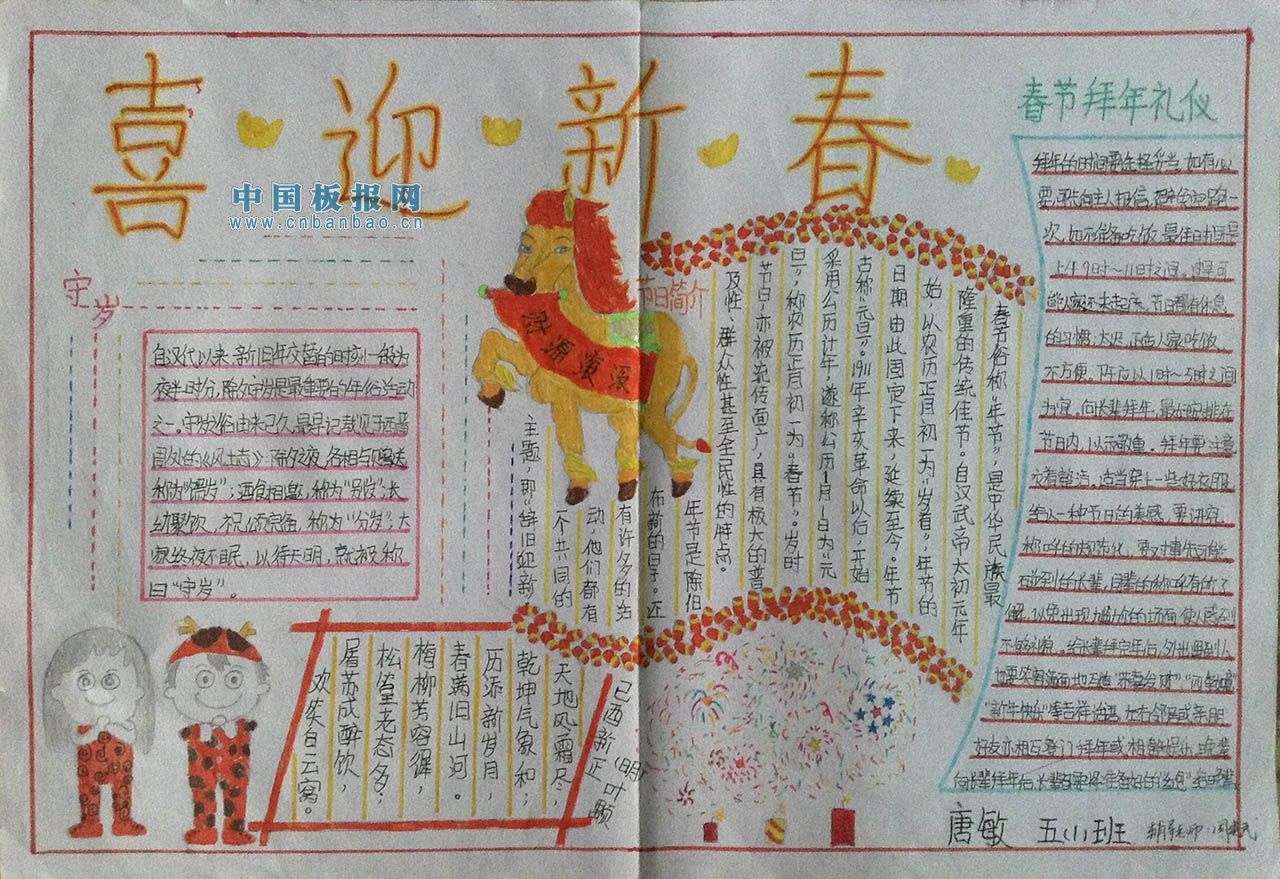 喜迎新春
中国板报网
www.cnbanbao.cn
守岁
自汉代以来,新旧年交替的时刻一般为
夜半时分,除夕守岁是最重要的年俗活动
之一。守岁之俗由来已久,最早记载见于西晋
周处的《风土志》:除夕之夜,各相与赠送,
称为“馈岁”;酒食相邀,称为“别岁”;长
幼聚饮,祝颂完备,称为“分岁”;大
家终夜不眠,以待天明,就被称
曰“守岁”。
财源滚滚
节日简介
春节俗称“年节”,是中华民族最
隆重的传统佳节。自汉武帝太初元年
始,以农历正月初一为“岁首”,年节的
日期由此固定下来,延续至今。年节
古称“元旦”。1911年辛亥革命以后,开始
采用公历计年,遂称公历1月1日为“元
旦”,称农历正月初一为“春节”。岁时
节日,亦被流传面广,具有极大的普
及性、群众性甚至全民性的特点。
年节是除旧
布新的日子。还
有许多的活
动,他们都有
一个共同的
主题,即“辞旧迎新
己酉新正(明)叶颙
天地风霜尽,
乾坤气象和;
历添新岁月,
春满旧山河。
梅柳芳容徲,
松篁老态多;
屠苏成醉饮,
欢笑白云窝。
春节拜年礼仪
拜年的时间要选择妥当,如有必
要,事先向主人
次,如不准备吃饭,最佳时间是
上午9时~11时之间。
能人家还未起床,节日都有休息
的习惯;太迟,正击人家吃饭,
不方便。下午应以1时~5时之间
为宜。向长辈拜年,最好安排在
节日内,以示敬重。拜年要注意
衣着整洁,适当穿上一些好衣服
给以一种节日的美感。要讲究
称呼的规范化,要对事先可能
碰到的长辈、同辈的称呼有所了
解,以免出现尴尬的场面,使人感到
不够亲热。给长辈拜完年后,外出遇到人
也要笑容满面地互道“恭喜发财”“四季如意”
“新年快乐”等吉祥话语,左右邻居或亲朋
好友亦相互登门拜年或相邀
向长辈拜年后,长辈要将准备好的“红包”
唐敏 五(1)班 辅导老师:周